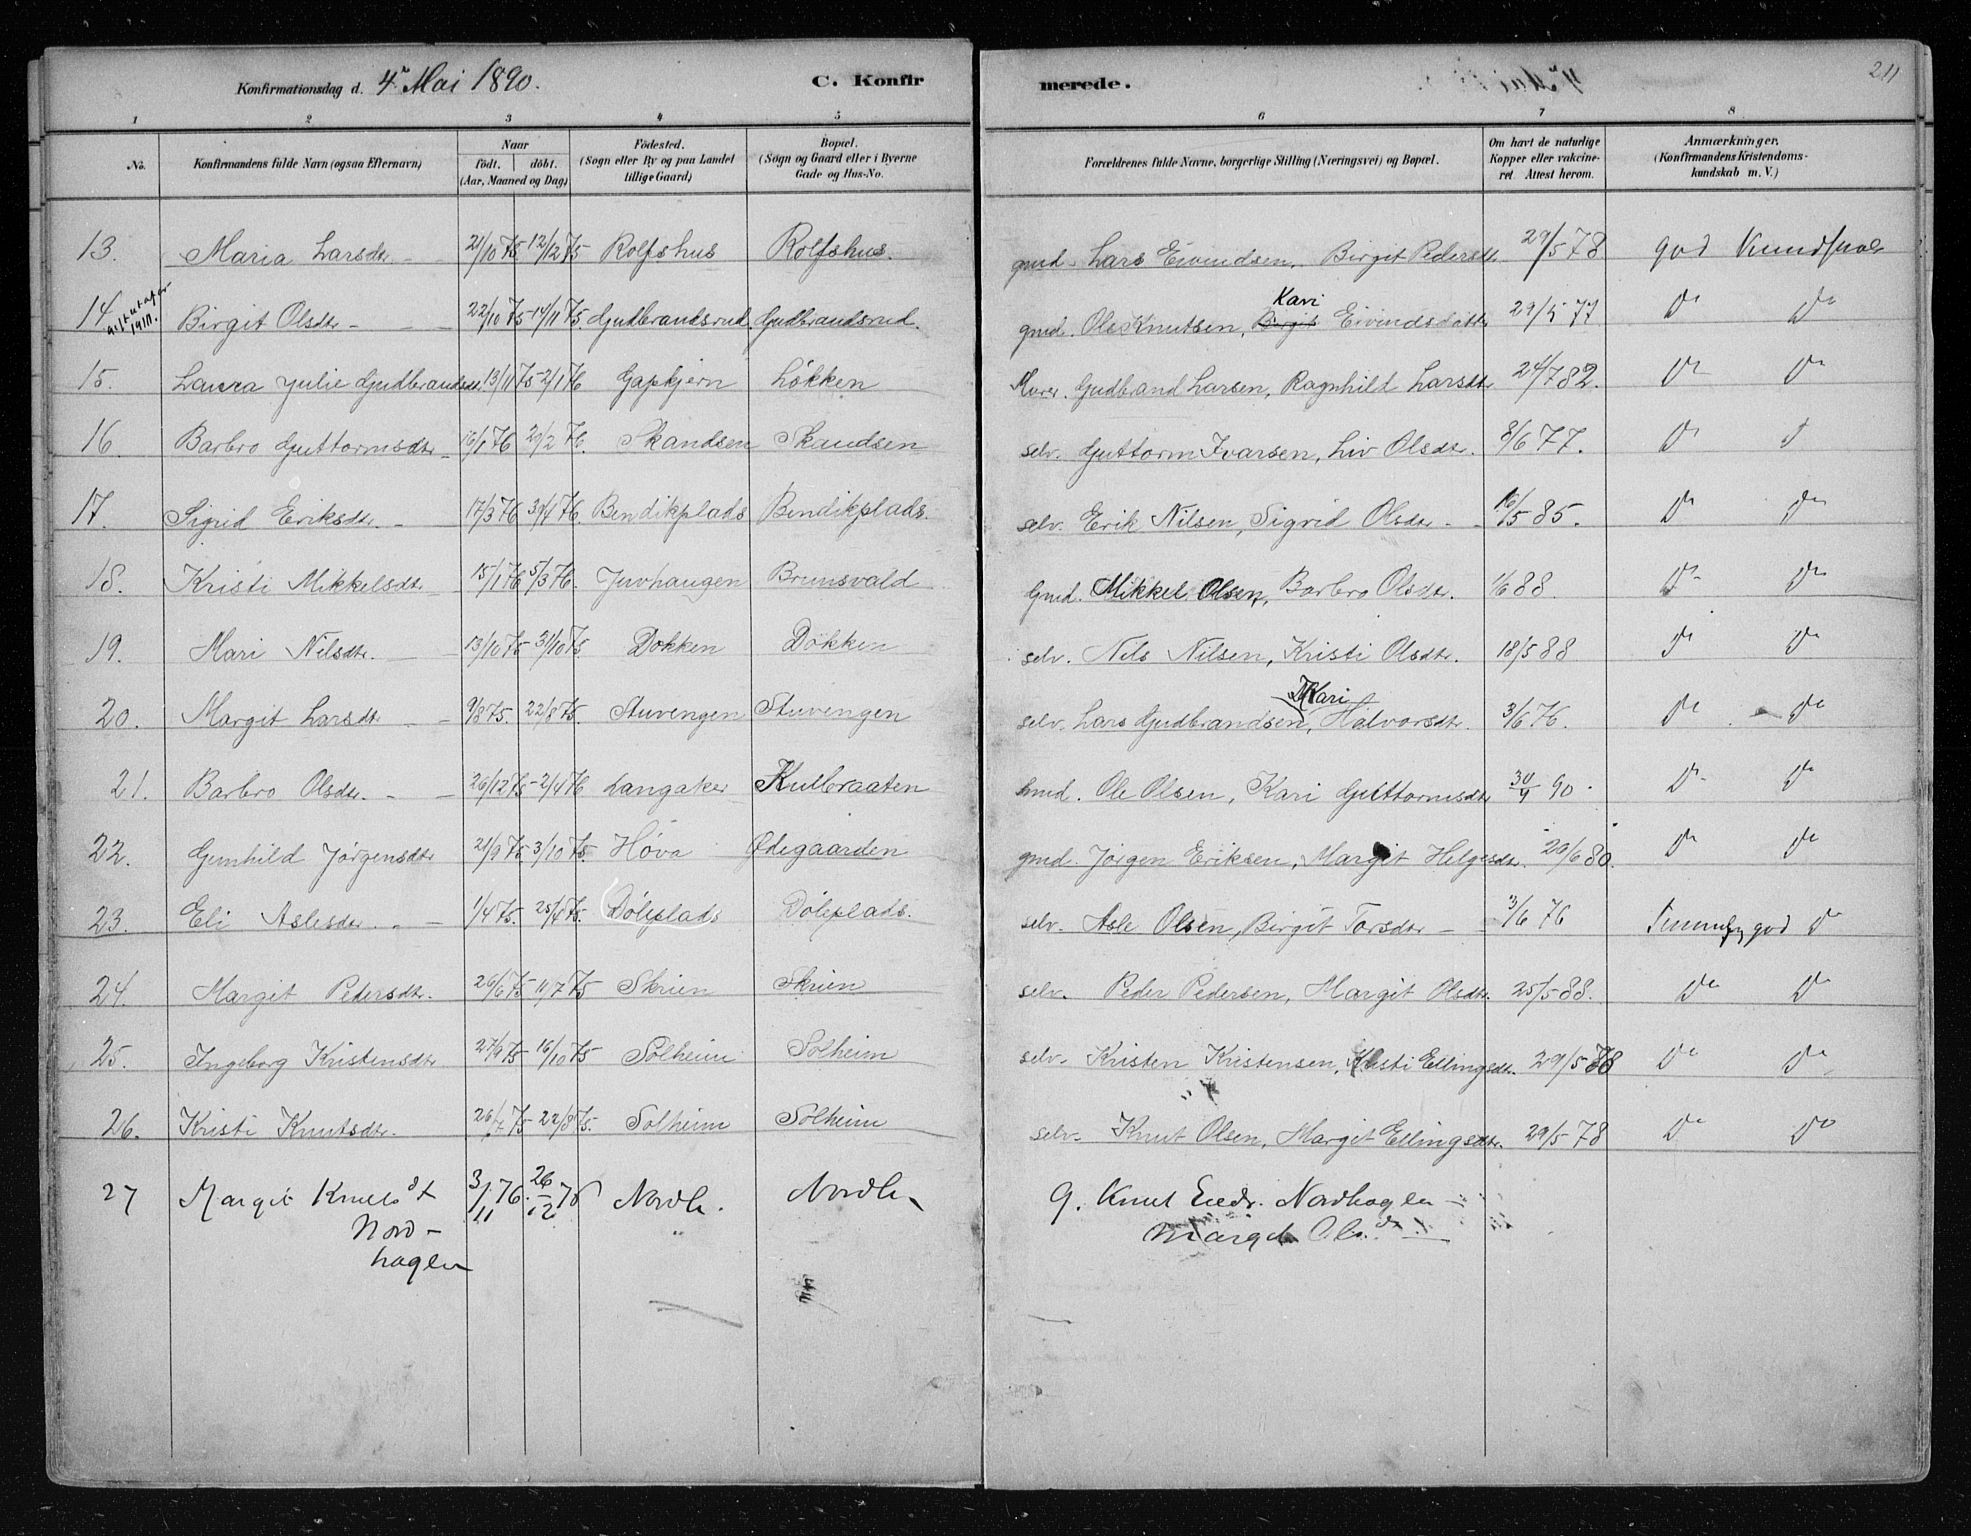 Konfirmationsdag d. 4de Mai 1890. C. Konfirmerede. 211
1 2 3 4 5 6 7 8
No. Konfirmandens fulde Navn (ogsaa Efternavn) Naar födt. döbt. (Aar, Maaned og Dag) Födested. (Sogn eller By og paa Landet tillige Gaard) Bopæl. (Sogn og Gaard eller i Byerne Gade og Hus-No. Forældrenes fulde Navne, borgerlige Stilling (Næringsvei) og Bopæl. Om havt de naturlige Kopper eller vakcineret. Attest herom. Anmærkninger. (Konfirmandens Kristendomskundskab m. V.)
13. Maria Larsdtr 21/10 75. 12/12 75 Rolfshus Rolfshus. gmd. Lars Eivindsen, Birgit Pedersdtr 29/5 78 god Kundskab
14 1911. Birgit Olsdtr 22/10 75 14/11 75. Gudbrandsrud Gudbrandsrud. gmd. Ole Knutsen, Birgit Kari Eivindsdatter 29/5 77 Do Do
15. Laura Julie Gudbrandsdtr. 13/11 75 2/1 76 Gapkjern Løkken Gudbrand Larsen, Ragnhild Larsdtr 24/7 82. Do Do
16. Barbro Guttormsdtr 16/1 76 29/2 76. Skandsen Skandsen selv. Guttorm Ivarsen, Liv Olsdtr. 8/6 77. Do Do
17. Sigrid Eriksdtr. 17/3 76 76. Bendikplads Bendikplads. selv. Erik Nilsen, Sigrid Olsdtr 16/5 85. Do Do
18. Kristi Mikkelsdtr 15/1 76 5/3 76. Juvhaugen Brunsvald Gmd. Mikkel Olsen, Barbro Olsdtr. 1/6 88. Do Do
19. Mari Nilsdtr. 13/10 75 31/10 75. Dokken Dokken selv. Nils Nilsen, Kristi Olsdtr. 18/5 88 Do Do
20. Margit Larsdtr 9/8 75. 22/8 75. Stuvengen Stuvengen selv. Lars Gudbrandsen, Kari Halvorsdtr. 3/6 76. Do Do
21. Barbro Olsdtr. 26/12 75 2/4 76 Langaker Kulbraaten Gmd. Ole Olsen, Kari Guttormsdtr 30/4 90. Do Do
22. Gunhild Jørgensdtr 21/9 75 3/10 75 Høva Ødegaarden gmd. Jørgen Eriksen, Margit Helgesdtr. 29/6 80. Do Do
23. Eli Aslesdtr. 1/4 75. 25/4 75. Döleplads Döleplads. selv. Asle Olsen, Birgit Torsdtr 3/6 76 Temmelig god Do
24. Margit Pedersdtr. 26/6 75 11/7 75 Skrien Skrien selv. Peder Pedersen, Margit Olsdtr. 25/5 88. Do Do
25. Ingeborg Kristensdtr 27/9 75 16/10 75 Solheim Solheim selv. Kristen Kristensen, Kristi Ellingsdtr. 29/5 78 Do Do
26. Kristi Knutsdtr. 26/7 75 22/8 75. Solheim Solheim selv. Knut Olsen, Margit Ellingsdtr. 29/5 78 Do Do
27 Margit Knutsdt 3/11 76. 26/12 76 Nordh. Nordh. g. Knut Endr. Nordhagen
Nord- Margit Ols.dt.
hagen